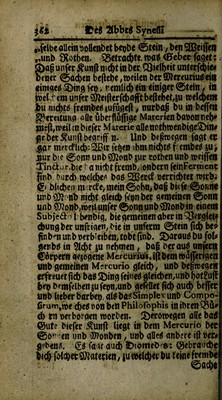 362 Des Abbts Synesii
selbe allein vollendet beyde Stein, den Weissen
und Rothen. Betrachte, was Geber saget:
Daß unser Kunst nicht in der Vielheit unterschie-
dener Sachen bestehe, weilen der Mercurius ein
einiges Ding sey, nemlich ein einiger Stein, in
welchem unser Meisterschafft bestehet, zu welchem
du nichts frembdes zufügest, nur daß du in dessen
Bereitung alle überflüssige Materien davon neh-
mest, weil in dieser Materie alle nothwendige Din-
ge der Kunst begriffen. Und deßwegen sagt er
gar mercklich: Wir setzen ihm nichts frembdes zu,
nur die Sonn und Mond zur rothen und weissen
Tinctur, die da nicht fremd, sondern sein Ferment
sind durch welches das Werck verrichtet wird.
Endlichen mercke, mein Sohn, daß diese Sonne
und Mond nicht gleich seyn der gemeinen Sonn
und Mond, weil unser Sonn und Mond in einem
Subject lebendig, die gemeinen aber in Verglei-
chung der unsrigen, die in unserm Stein sich be-
finden und verbleiben, todt sind. Daraus du fol-
gends in Acht zu nehmen, daß der aus unsern
Cörpern gezogene Mercurius, ist dem wässerigen
und gemeinen Mercurio gleich, und deßwegen
erfreuet sich das Ding seines gleichen, und
bey demselben zu seyn, und gesellet sich auch besser
und lieber darbey, als das Simplex und Compo-
situm, welches von den Philosophis in ihren Bü-
chern verborgen worden. Derowegen alle das
Gute dieser Kunst liegt in dem Mercurio der
Sonnen und Monden, und alles andere ist ver-
gebens. Es sagt auch Diomedes: Gebrauche
dich solcher Materien, zu welcher du keine fremde
Sache